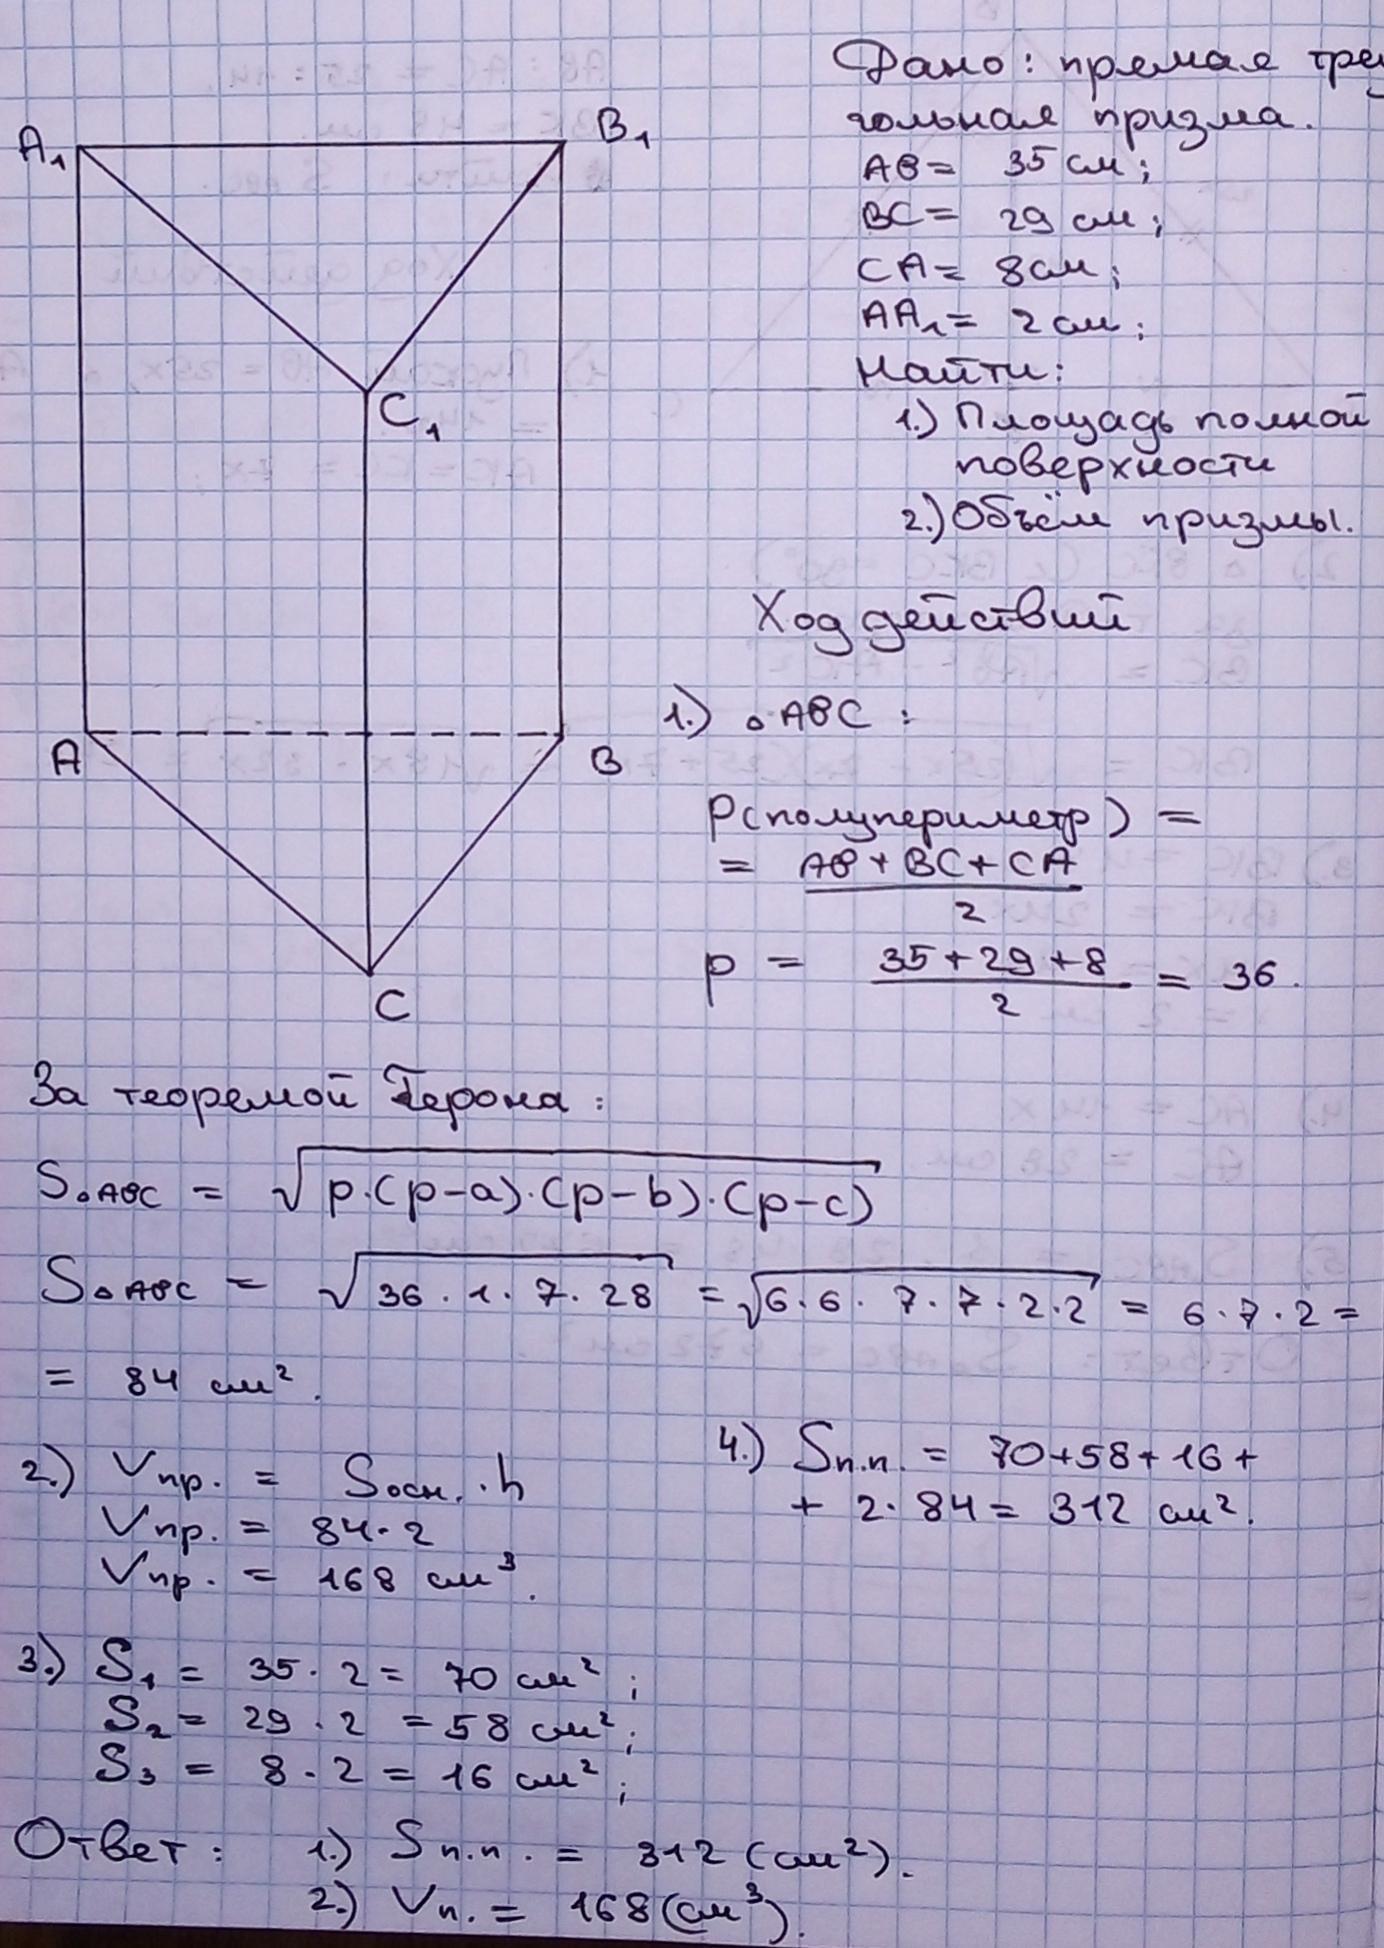 Дано: прямая треу
гольная призма.
AB = 35 см;
BC = 29 см;
CA = 8 см;
AA₁ = 2 см;
Найти:
1.) Площадь полной
поверхности
2.) Объём призмы.
A₁
B₁
C₁
A
B
C
Ход действий
1.) △ABC :
P(полупериметр) =
= (AB + BC + CA)/2
p = (35 + 29 + 8)/2 = 36.
За теоремой Герона:
S△ABC = √(p·(p-a)·(p-b)·(p-c))
S△ABC = √(36·1·7·28) = √(6·6·7·7·2·2) = 6·7·2 =
= 84 см².
2.) Vпр. = Sосн.·h
Vпр. = 84·2
Vпр. = 168 см³.
3.) S₁ = 35·2 = 70 см²;
S₂ = 29·2 = 58 см²;
S₃ = 8·2 = 16 см²;
4.) Sп.п. = 70+58+16+
+ 2·84 = 312 см².
Ответ: 1.) Sп.п. = 312 (см²).
2.) Vп. = 168 (см³).